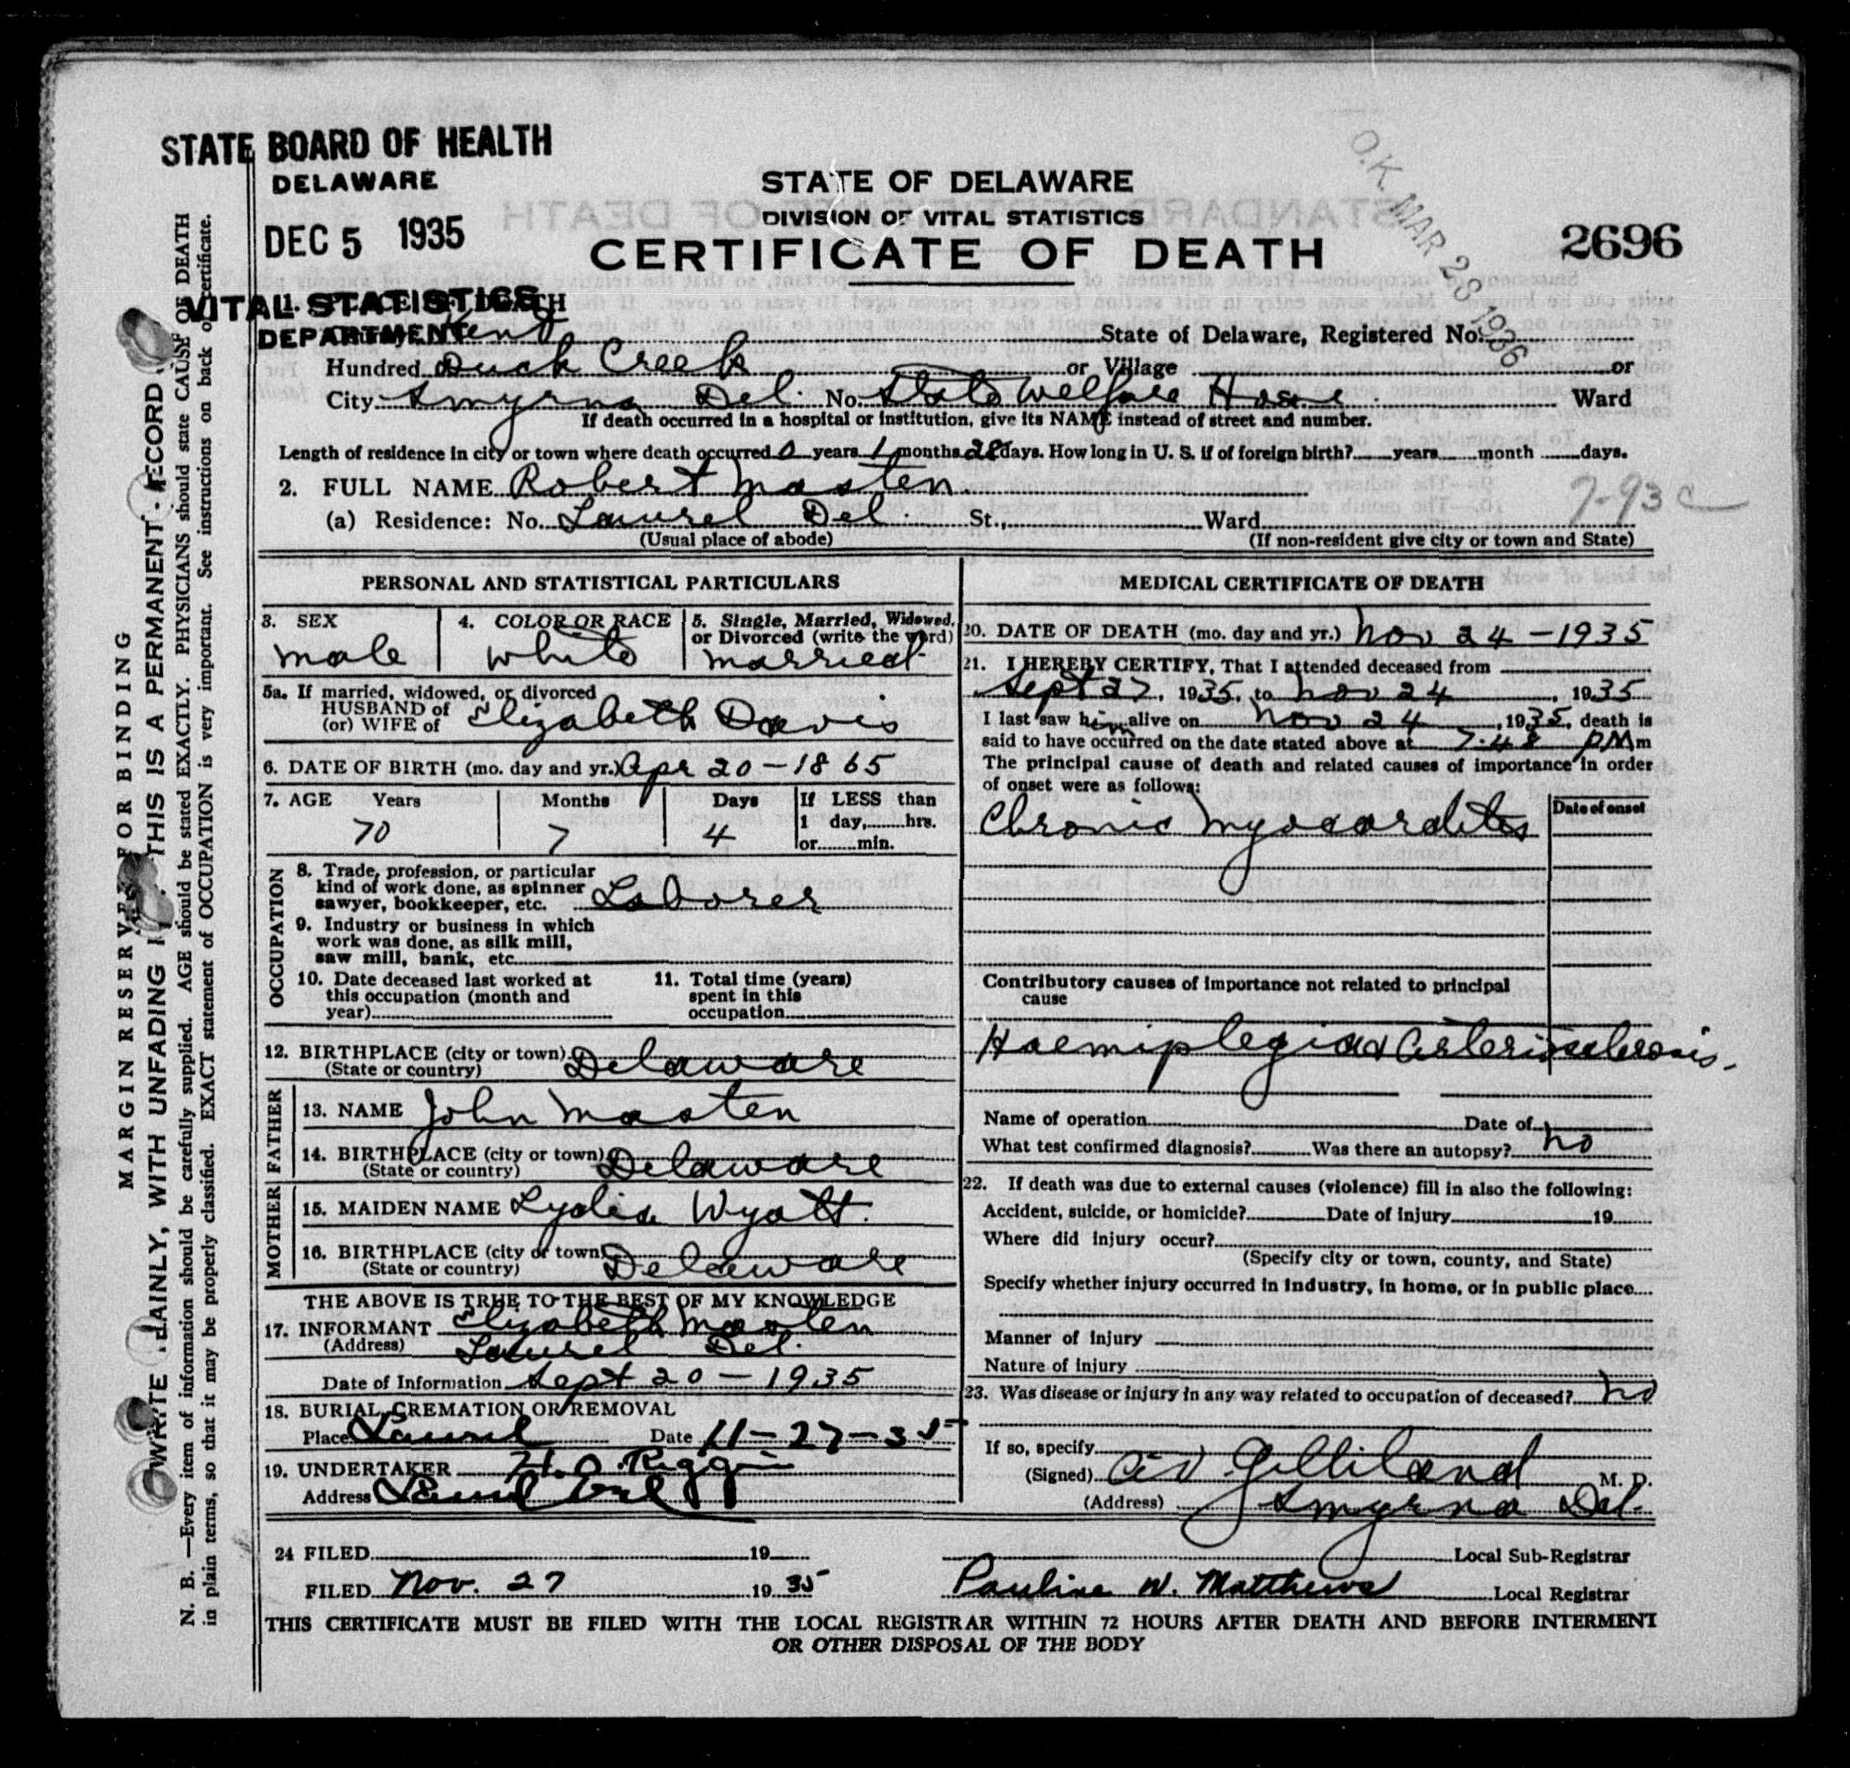 STATE BOARD OF HEALTH
DELAWARE
DEC 5 1935
VITAL STATISTICS
DEPARTMENT
STATE OF DELAWARE
DIVISION OF VITAL STATISTICS
CERTIFICATE OF DEATH
2696
O.K. MAR 28 1936
1. PLACE OF DEATH
County Kent State of Delaware, Registered No.
Hundred Duck Creek or Village or
City Smyrna Del. No. State Welfare Home Ward
If death occurred in a hospital or institution, give its NAME instead of street and number.
Length of residence in city or town where death occurred 0 years 1 months 28 days. How long in U. S. if of foreign birth? years month days.
2. FULL NAME Robert Masten
7-93 c
(a) Residence: No. Laurel Del. St., Ward
(Usual place of abode) (If non-resident give city or town and State)
PERSONAL AND STATISTICAL PARTICULARS
3. SEX
male
4. COLOR OR RACE
white
5. Single, Married, Widowed,
or Divorced (write the word)
married
5a. If married, widowed, or divorced
HUSBAND of
(or) WIFE of Elizabeth Davis
6. DATE OF BIRTH (mo. day and yr.) Apr 20 - 1865
7. AGE Years Months Days If LESS than
1 day, hrs.
or min.
70 7 4
OCCUPATION
8. Trade, profession, or particular
kind of work done, as spinner
sawyer, bookkeeper, etc. Laborer
9. Industry or business in which
work was done, as silk mill,
saw mill, bank, etc.
10. Date deceased last worked at
this occupation (month and
year)
11. Total time (years)
spent in this
occupation
12. BIRTHPLACE (city or town) Delaware
(State or country)
FATHER
13. NAME John Masten
14. BIRTHPLACE (city or town) Delaware
(State or country)
MOTHER
15. MAIDEN NAME Lydia Wyatt.
16. BIRTHPLACE (city or town) Delaware
(State or country)
THE ABOVE IS TRUE TO THE BEST OF MY KNOWLEDGE
17. INFORMANT Elizabeth Masten
(Address) Laurel Del.
Date of Information Sept 20 - 1935
18. BURIAL, CREMATION OR REMOVAL
Place Laurel Date 11-27-35
19. UNDERTAKER H. O. Riggin
Address Laurel Del
MEDICAL CERTIFICATE OF DEATH
20. DATE OF DEATH (mo. day and yr.) Nov 24 - 1935
21. I HEREBY CERTIFY, That I attended deceased from
Sept 27, 1935, to Nov 24, 1935
I last saw him alive on Nov 24, 1935, death is
said to have occurred on the date stated above at 7:48 PM m
The principal cause of death and related causes of importance in order
of onset were as follows:
Date of onset
Chronic Myocarditis
Contributory causes of importance not related to principal
cause
Haemiplegia & Arteriosclerosis.
Name of operation Date of
What test confirmed diagnosis? Was there an autopsy? no
22. If death was due to external causes (violence) fill in also the following:
Accident, suicide, or homicide? Date of injury 19
Where did injury occur?
(Specify city or town, county, and State)
Specify whether injury occurred in industry, in home, or in public place
Manner of injury
Nature of injury
23. Was disease or injury in any way related to occupation of deceased? no
If so, specify
(Signed) Gilliland M. D.
(Address) Smyrna Del.
24 FILED 19 Local Sub-Registrar
FILED Nov. 27 1935 Pauline W. Matthews Local Registrar
THIS CERTIFICATE MUST BE FILED WITH THE LOCAL REGISTRAR WITHIN 72 HOURS AFTER DEATH AND BEFORE INTERMENT
OR OTHER DISPOSAL OF THE BODY
MARGIN RESERVED FOR BINDING
WRITE PLAINLY, WITH UNFADING THIS IS A PERMANENT RECORD
N. B. —Every item of information should be carefully supplied. AGE should be stated EXACTLY. PHYSICIANS should state CAUSE OF DEATH
in plain terms, so that it may be properly classified. EXACT statement of OCCUPATION is very important. See instructions on back of certificate.